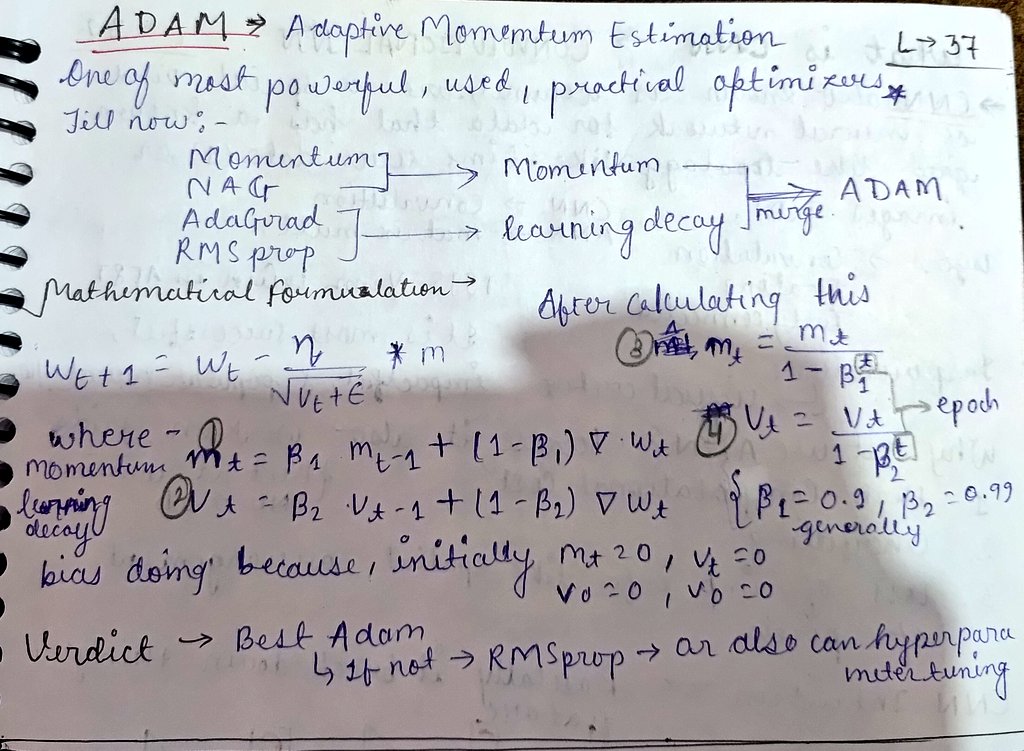 ADAM → Adaptive Momemtum Estimation
L→37
One of most powerful, used, practical optimizers *
Till now:-
Momentum
NAG
→ Momentum
AdaGrad
RMS prop
→ learning decay
merge
ADAM
Mathematical formulation →
w_{t+1} = w_t - η/√(v_t+ϵ) * m
where -
momentum ① m_t = β_1 m_{t-1} + (1-β_1) ∇·w_t
learning decay ② v_t = β_2 · v_{t-1} + (1-β_2) ∇ w_t
After calculating this
③ m_t = m_t/(1 - β_1^t)
④ v_t = v_t/(1 - β_2^t)
→ epoch
{ β_1 = 0.9, β_2 = 0.99
generally
bias doing because, initially m_t = 0, v_t = 0
v_0 = 0, v_0 = 0
Verdict → Best Adam
↳ If not → RMSprop → or also can hyperpara
meter tuning